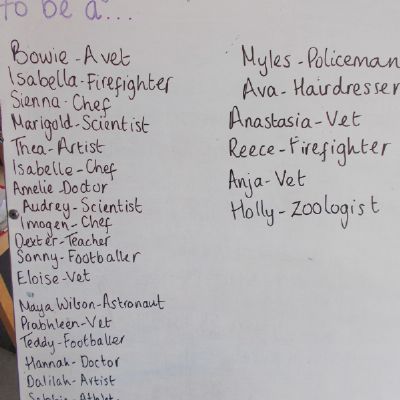 to be a...
Bowie - A vet
Isabella - Firefighter
Sienna - Chef
Marigold - Scientist
Thea - Artist
Isabelle - Chef
Amelie Doctor
Audrey - Scientist
Imogen - Chef
Dexter - Teacher
Sonny - Footballer
Eloise - Vet
Maya Wilson - Astronaut
Prabhleen - Vet
Teddy - Footballer
Hannah - Doctor
Dalilah - Artist
Myles - Policeman
Ava - Hairdresser
Anastasia - Vet
Reece - Firefighter
Anja - Vet
Holly - Zoologist